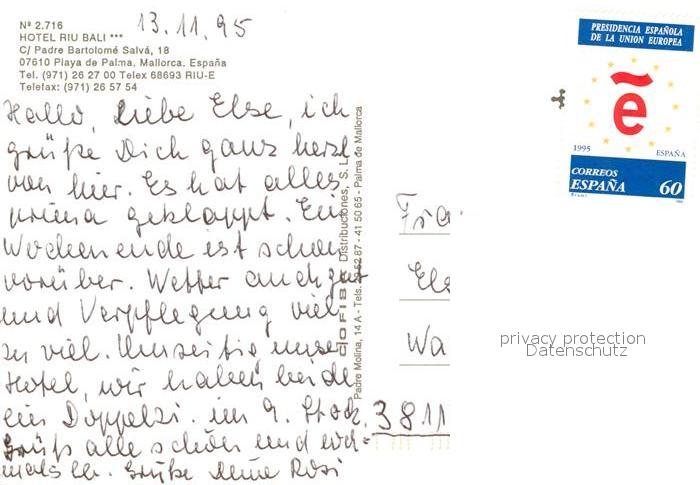 13.11.95
Nº 2.716
HOTEL RIU BALI ***
C/ Padre Bartolomé Salvá, 18
07610 Playa de Palma. Mallorca. España
Tel. (971) 26 27 00 Telex 68693 RIU-E
Telefax: (971) 26 57 54
Hallo, Liebe Else, ich
grüße Dich ganz herzl
von hier. Es hat alles
prima geklappt. Ein
Wochenende ist schon
vorüber. Wetter auch gut
und Verpflegung viel
zu viel. Umseitig unser
Hotel, wir haben beide
ein Doppelzi. im 9. Stock.
Grüß alle schön und
mals Grüße Deine Rosi
Distribuciones, S. L.
Padre Molina, 14 A - Tels. 87 - 41 50 65 - Palma de Mallorca
PRESIDENCIA ESPAÑOLA
DE LA UNION EUROPEA
e
1995 ESPAÑA
CORREOS
ESPAÑA 60
Els
Wa
3811
privacy protection
Datenschutz